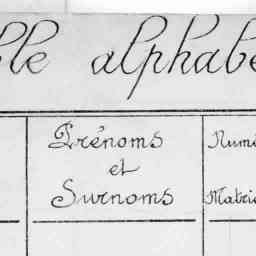 ble alphabé
Prénoms
et
Surnoms
Numé
Matric